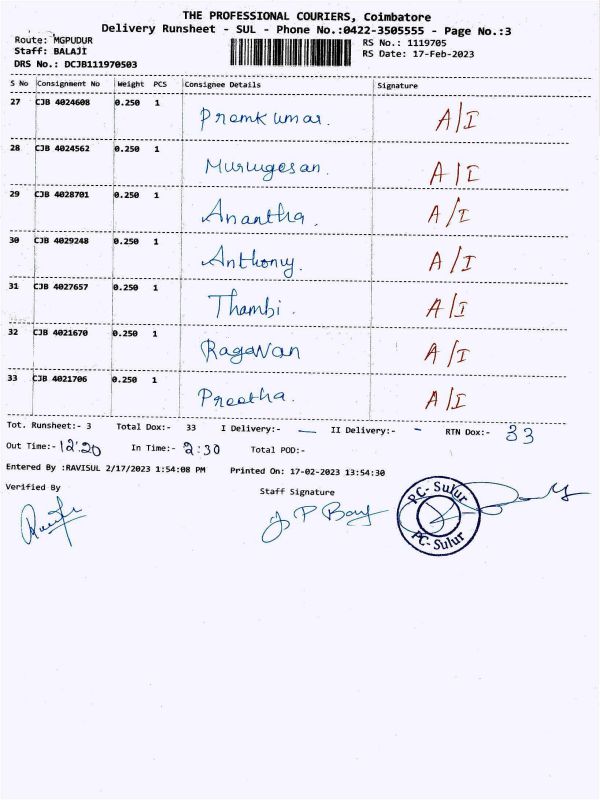 THE PROFESSIONAL COURIERS, Coimbatore
Delivery Runsheet - SUL - Phone No.:0422-3505555 - Page No.:3
Route: MGPUDUR
RS No.: 1119705
Staff: BALAJI
RS Date: 17-Feb-2023
DRS No.: DCJB111970503
S No Consignment No Weight PCS Consignee Details Signature
27 CJB 4024608 0.250 1 Premkumar. A/I
28 CJB 4024562 0.250 1 Murugesan. A/I
29 CJB 4028701 0.250 1 Anantha. A/I
30 CJB 4029248 0.250 1 Anthony. A/I
31 CJB 4027657 0.250 1 Thambi. A/I
32 CJB 4021670 0.250 1 Ragavan A/I
33 CJB 4021706 0.250 1 Preetha. A/I
Tot. Runsheet:- 3 Total Dox:- 33 I Delivery:- — II Delivery:- - RTN Dox:- 33
Out Time:- 12:20 In Time:- 2:30 Total POD:-
Entered By :RAVISUL 2/17/2023 1:54:08 PM Printed On: 17-02-2023 13:54:30
Verified By
Staff Signature
PC- Sulur
PC- Sulur